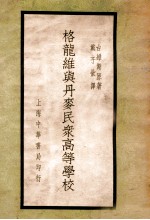 原著
戴子欽譯
格龍維與丹麥民衆高等學校
上海中華書局印行